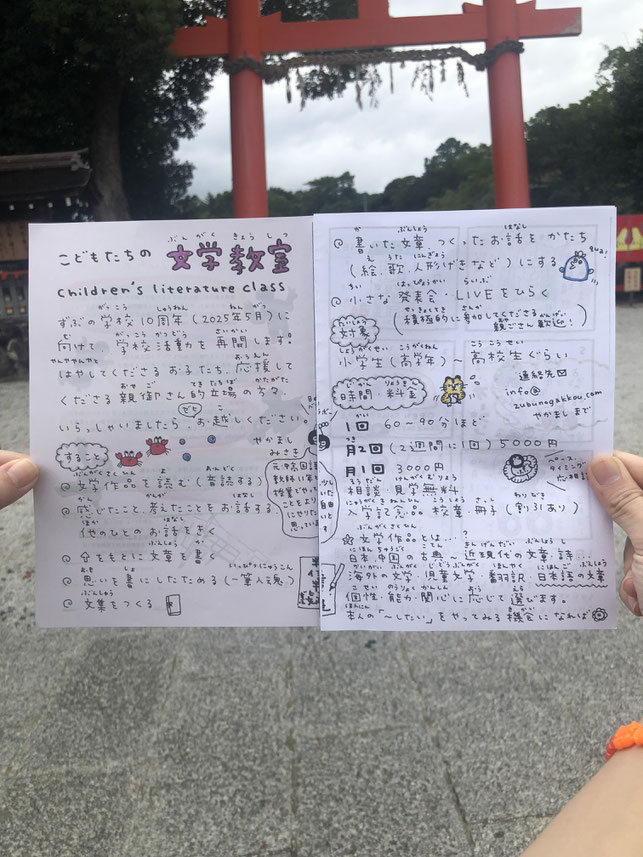 こどもたちの 文学教室
children's literature class
ずぶの学校10周年(2025年5月)に
向けて 学校活動を再開します。
はやしてくださるお子たち、応援して
くださる親御さん的立場の方々、
いらっしゃいましたらどしお越しください。
やかまし
みさき
すること
文学作品を読む(音読する)
感じたこと、考えたことをお話する
他のひとのお話をきく
今をもとに文章を書く
思いを書にしたためる(一筆入魂)
文集をつくる
元
教師
授業
ことを
にやりた
思ってい
書いた文章、つくったお話をかたち
(絵、歌、人形げきなど)にする
小さな発表会・LIVEをひらく
(積極的に参加してくださる
親ごさん歓迎!)
対象
小学生(高学年) 高校生ぐらい
時間・料金
連絡先
info@
zubunogakkou.com
やかましまで
1回 60~90分ほど
月2回(2週間に1回)5000円
月1回 3000円
相談・見学無料
入学記念品 校章・冊子(割引あり)
ペース、
タイミング
応相談
☆文学作品とは…?
日本、中国の古典~近現代の文章、詩
海外の文学・児童文学・翻訳・日本語の文章
個性・能力・関心に応じて選びます。
本人の「~したい」をやってみる機会になれば